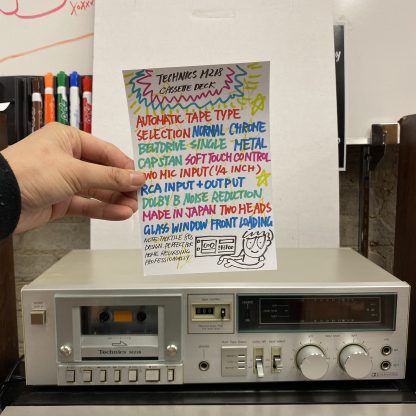 TECHNICS M218
CASSETTE DECK
AUTOMATIC TAPE TYPE
SELECTION NORMAL CHROME
BELTDRIVE SINGLE METAL
CAPSTAN SOFT TOUCH CONTROL
TWO MIC INPUT (1/4 INCH)
RCA INPUT + OUTPUT
DOLBY B NOISE REDUCTION
MADE IN JAPAN TWO HEADS
GLASS WINDOW FRONT LOADING
NOTE: TACTILE 80s
DESIGN. PERFECT FOR
HOME RECORDING
PROFESSIONALLY
Technics M218